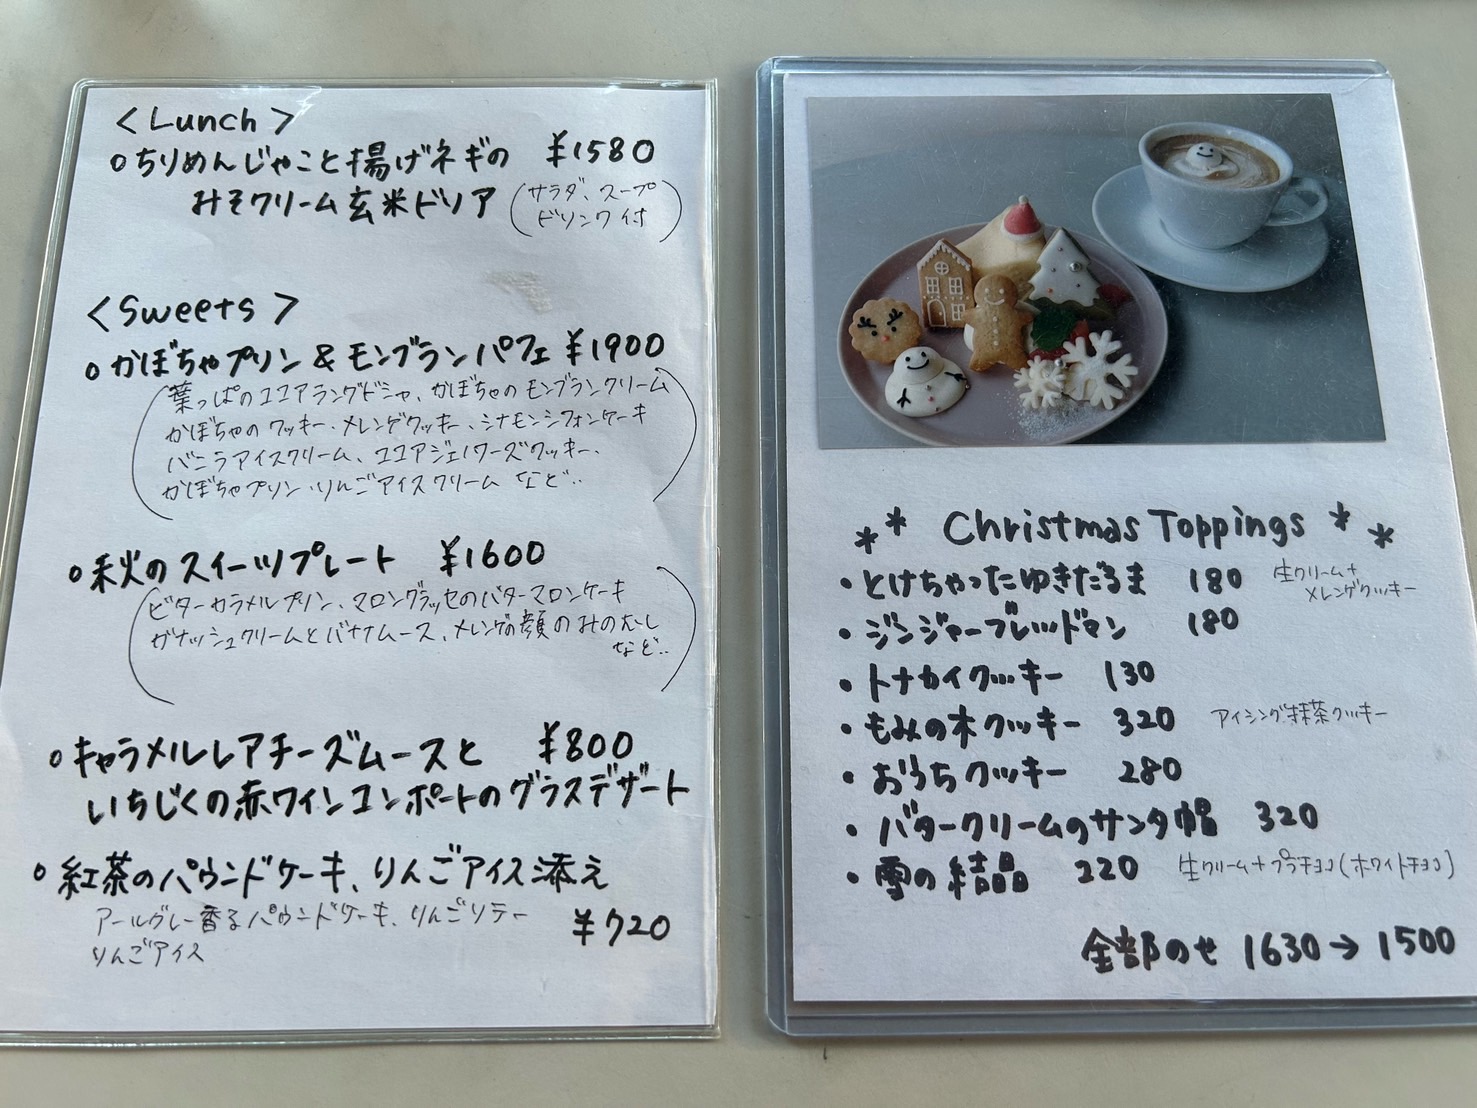 <Lunch>
○ちりめんじゃこと揚げネギの ¥1580
みそクリーム玄米ドリア (サラダ、スープ
ドリンク付)
<Sweets>
○かぼちゃプリン&モンブランパフェ ¥1900
(葉っぱのココアラングドシャ、かぼちゃのモンブランクリーム
かぼちゃのクッキー、メレンゲクッキー、シナモンシフォンケーキ
バニラアイスクリーム、ココアジェノワーズクッキー、
かぼちゃプリン、りんごアイスクリーム など‥)
○秋のスイーツプレート ¥1600
(ビターカラメルプリン、マロングラッセのバターマロンケーキ
ガナッシュクリームとバナナムース、メレンゲの顔のみのむし
など‥)
○キャラメルレアチーズムースと ¥800
いちじくの赤ワインコンポートのグラスデザート
○紅茶のパウンドケーキ、りんごアイス添え
アールグレー香るパウンドケーキ、りんごソテー ¥720
りんごアイス
** Christmas Toppings **
・とけちゃったゆきだるま 180 生クリーム+
メレンゲクッキー
・ジンジャーブレッドマン 180
・トナカイクッキー 130
・もみの木クッキー 320 アイシング抹茶クッキー
・おうちクッキー 280
・バタークリームのサンタ帽 320
・雪の結晶 220 生クリーム+プラチョコ(ホワイトチョコ)
全部のせ 1630→1500